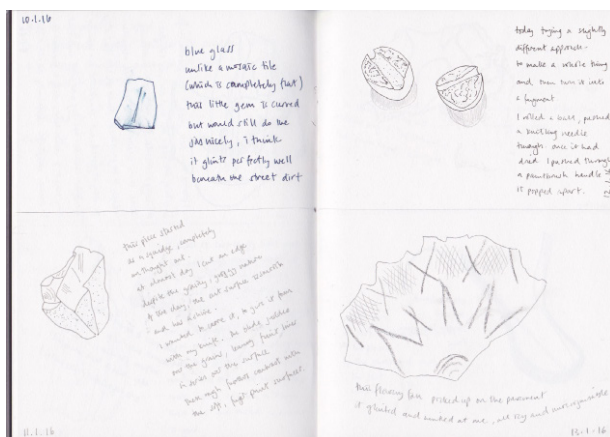 10.1.16
blue glass
unlike a mosaic tile
(which is completely flat)
this little gem is curved
but would still do the
job nicely, i think
it glints perfectly well
beneath the street dirt
today trying a slightly
different approach.
to make a whole thing
and then turn it into
a fragment
I rolled a ball, pushed
a knitting needle
through once it had
dried I pushed through
a paintbrush handle
it popped apart.
this piece started
as a splodge, completely
un thought out.
at almost dry i cut an edge
despite the gravity, nature
of the clay, the cut surface
and has a shine.
I wanted to carve it, to join it
with my knife. the blade
over the grains, leaving faint lines
in the surface
these rough furrows contrast with
the soft, finger print surfaces.
11.1.16
this flowing form picked up on the pavement
it glinted and winked at me, all icy and
13.1.16